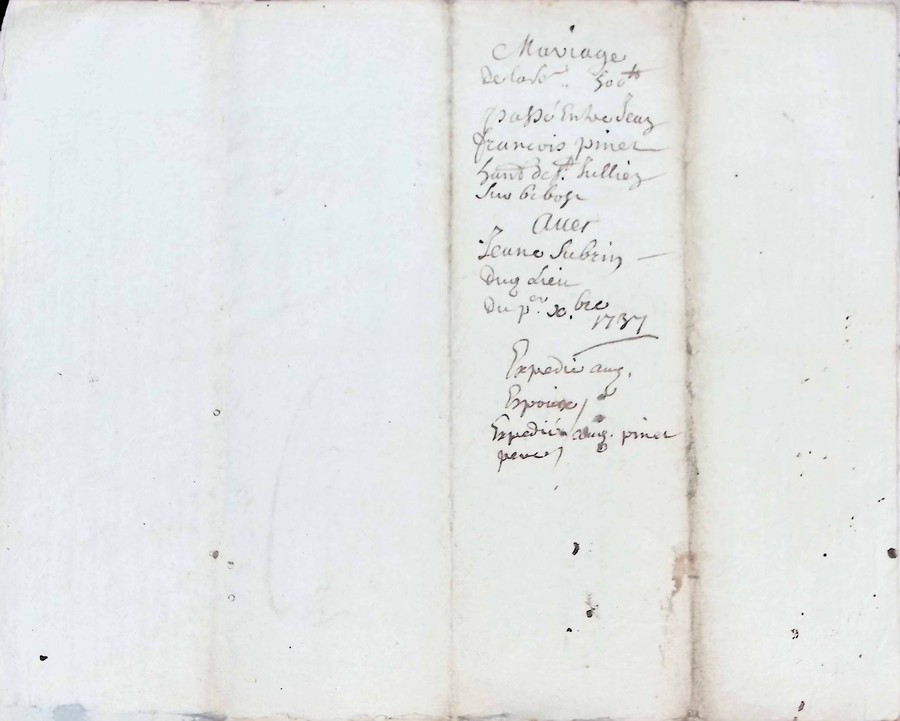 Mariage
De la so 500tt
passé Entre Jean
francois pinet
habt de st Jullien
Sur bibost
Avec
Jeane Subrin
Dug Lieu
Du per xbre
1737
Expedié aux
Epoux
Expedié aug. pinet
pere